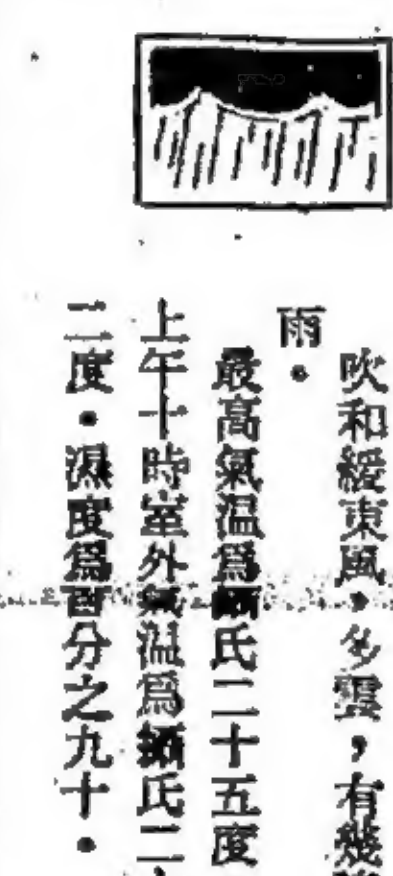 吹和緩東風，多雲，有幾
雨。
最高氣温爲攝氏二十五度
上午十時室外氣温爲攝氏二
二度。濕度爲百分之九十。